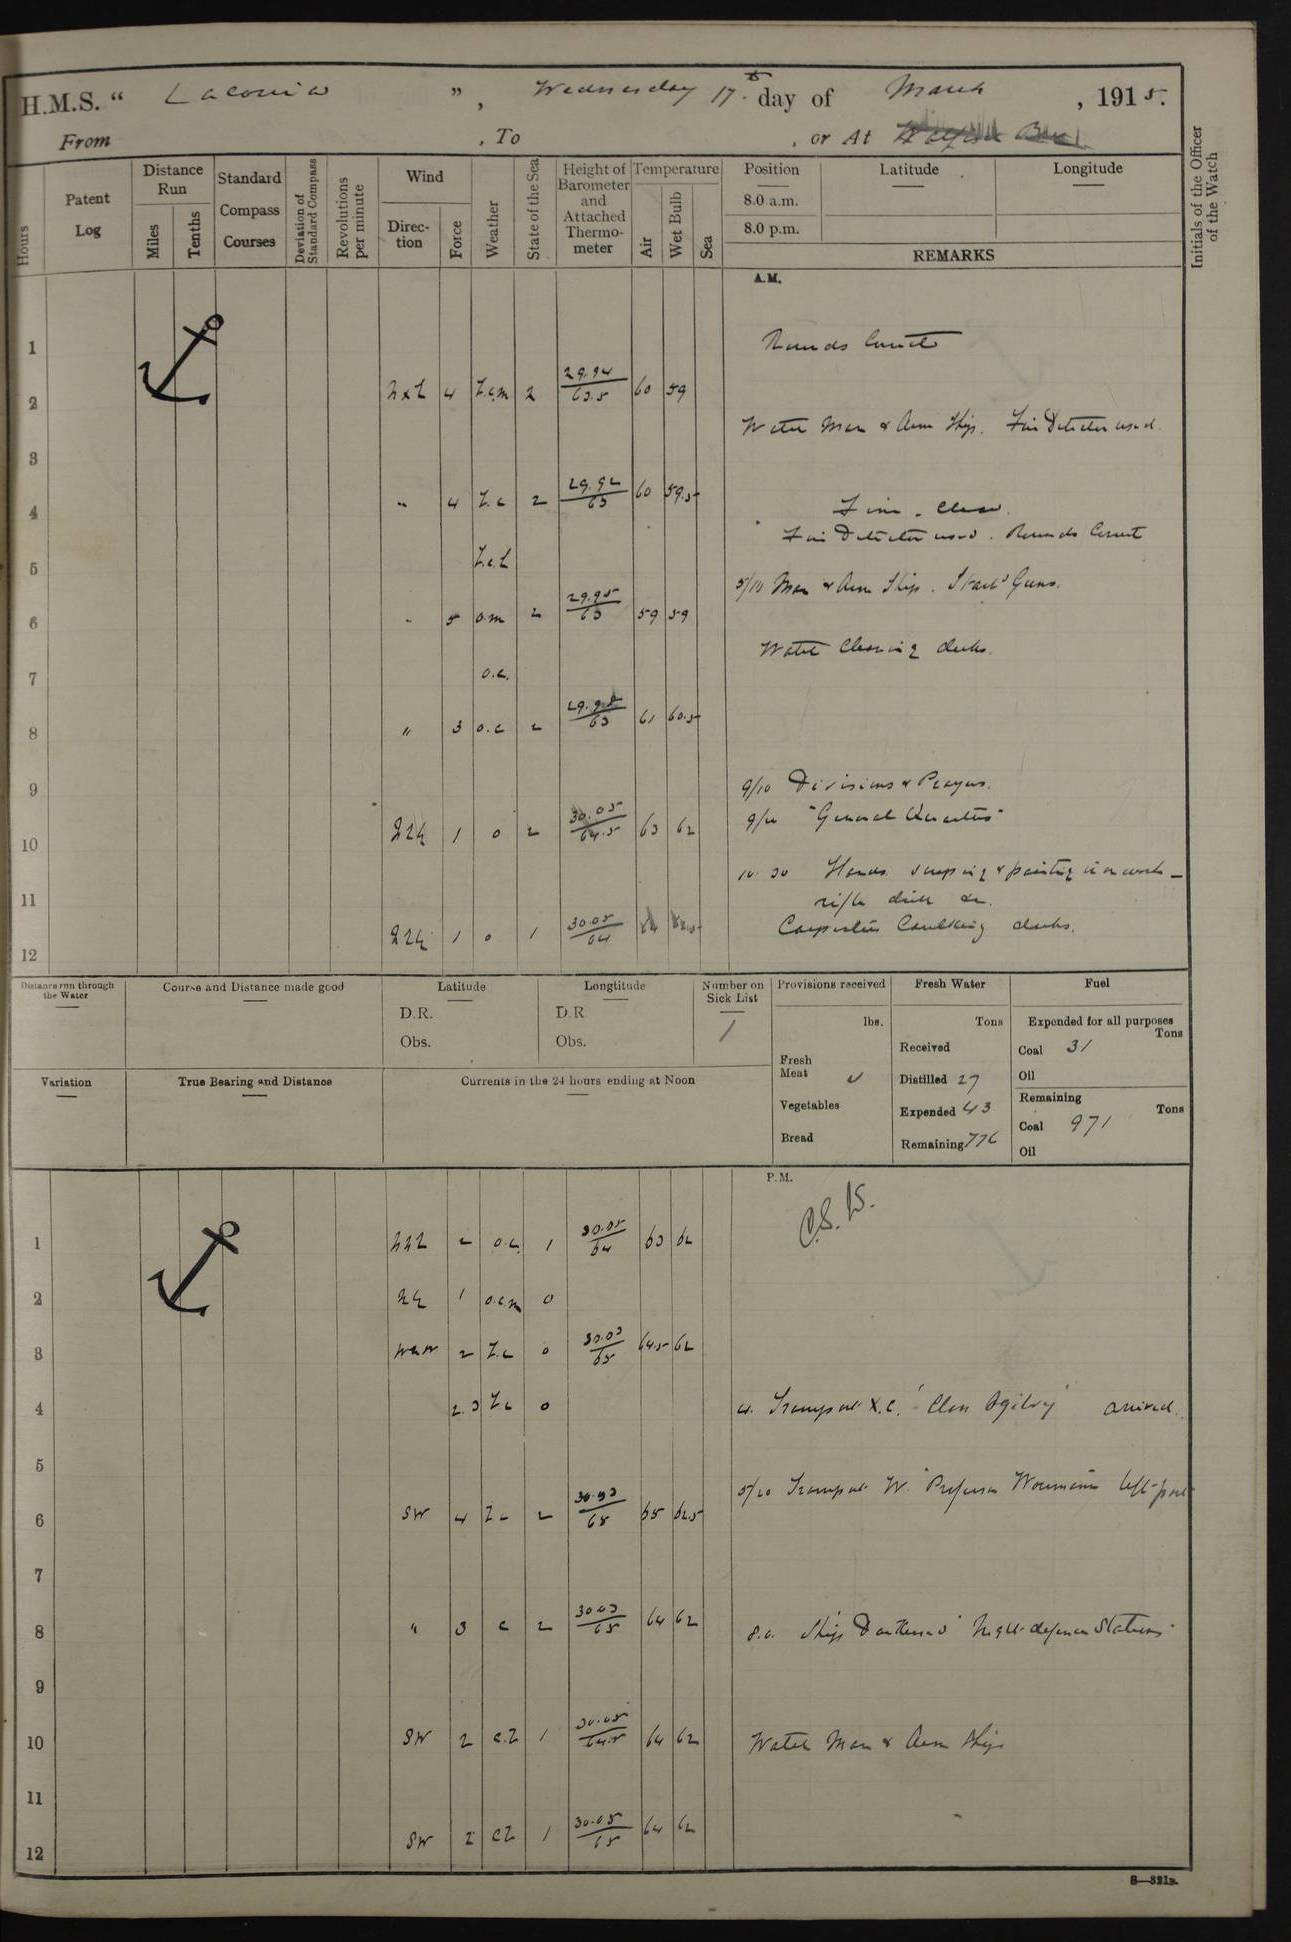 H.M.S. " Laconia " , Wednesday 17th day of March , 1915.
From , To , or At
Hours
Patent Log
Distance Run
Miles
Tenths
Standard Compass Courses
Deviation of Standard Compass
Revolutions per minute
Wind
Direction
Force
Weather
State of the Sea
Height of Barometer and Attached Thermometer
Temperature
Air
Wet Bulb
Sea
Position
8.0 a.m.
8.0 p.m.
Latitude
Longitude
REMARKS
Initials of the Officer of the Watch
A.M.
1 Rounds Correct
2 4 2 29.94 63.5 60 59
Watch Man & Arm Ship. Fire Detector used
3
4 " 4 2 29.92 63 60 59.5
Fire Detector used. Rounds Correct
5
5/10 Man & Arm Ship. Guns.
6 " 5 o.m 2 29.95 63 59 59
Watch Cleaning decks.
7 o.c.
8 " 3 o.c 2 63 61 60.5
9 9/10 Divisions & Prayers.
9/20 "General Quarters"
10 1 o 2 30.05 64.5 63 62
10.30 Hands scraping & painting iron work
11 rifle drill &c.
Carpenters Caulking decks.
12 1 o 1 30.05 64
Distance run through the Water
Course and Distance made good
Latitude
D.R.
Obs.
Longtitude
D.R
Obs.
Number on Sick List
1
Provisions received
lbs.
Fresh Meat
Vegetables
Bread
Fresh Water
Tons
Received
Distilled 27
Expended 43
Remaining 776
Fuel
Expended for all purposes
Tons
Coal 31
Oil
Remaining
Tons
Coal 971
Oil
Variation
True Bearing and Distance
Currents in the 24 hours ending at Noon
P.M.
1 2 o.c. 1 30.05 64 63 62
2 1 o.c.m 0
3 2 0 30.03 65 64.5 62
4 2.3 0 4. Transport X.C. 'Clan Ogilvy' arrived.
5
5/20 Transport W. "Professor Woermann" left port
6 SW 4 2 30.03 65 65 62.5
7
8 " 3 c 2 30.03 65 64 62 8.0. Ship Darkened Night defence Stations
9
10 SW 2 1 30.05 64.5 64 62 Watch Man & Arm Ship
11
12 SW 2 1 30.05 65 64 62
S—321a.